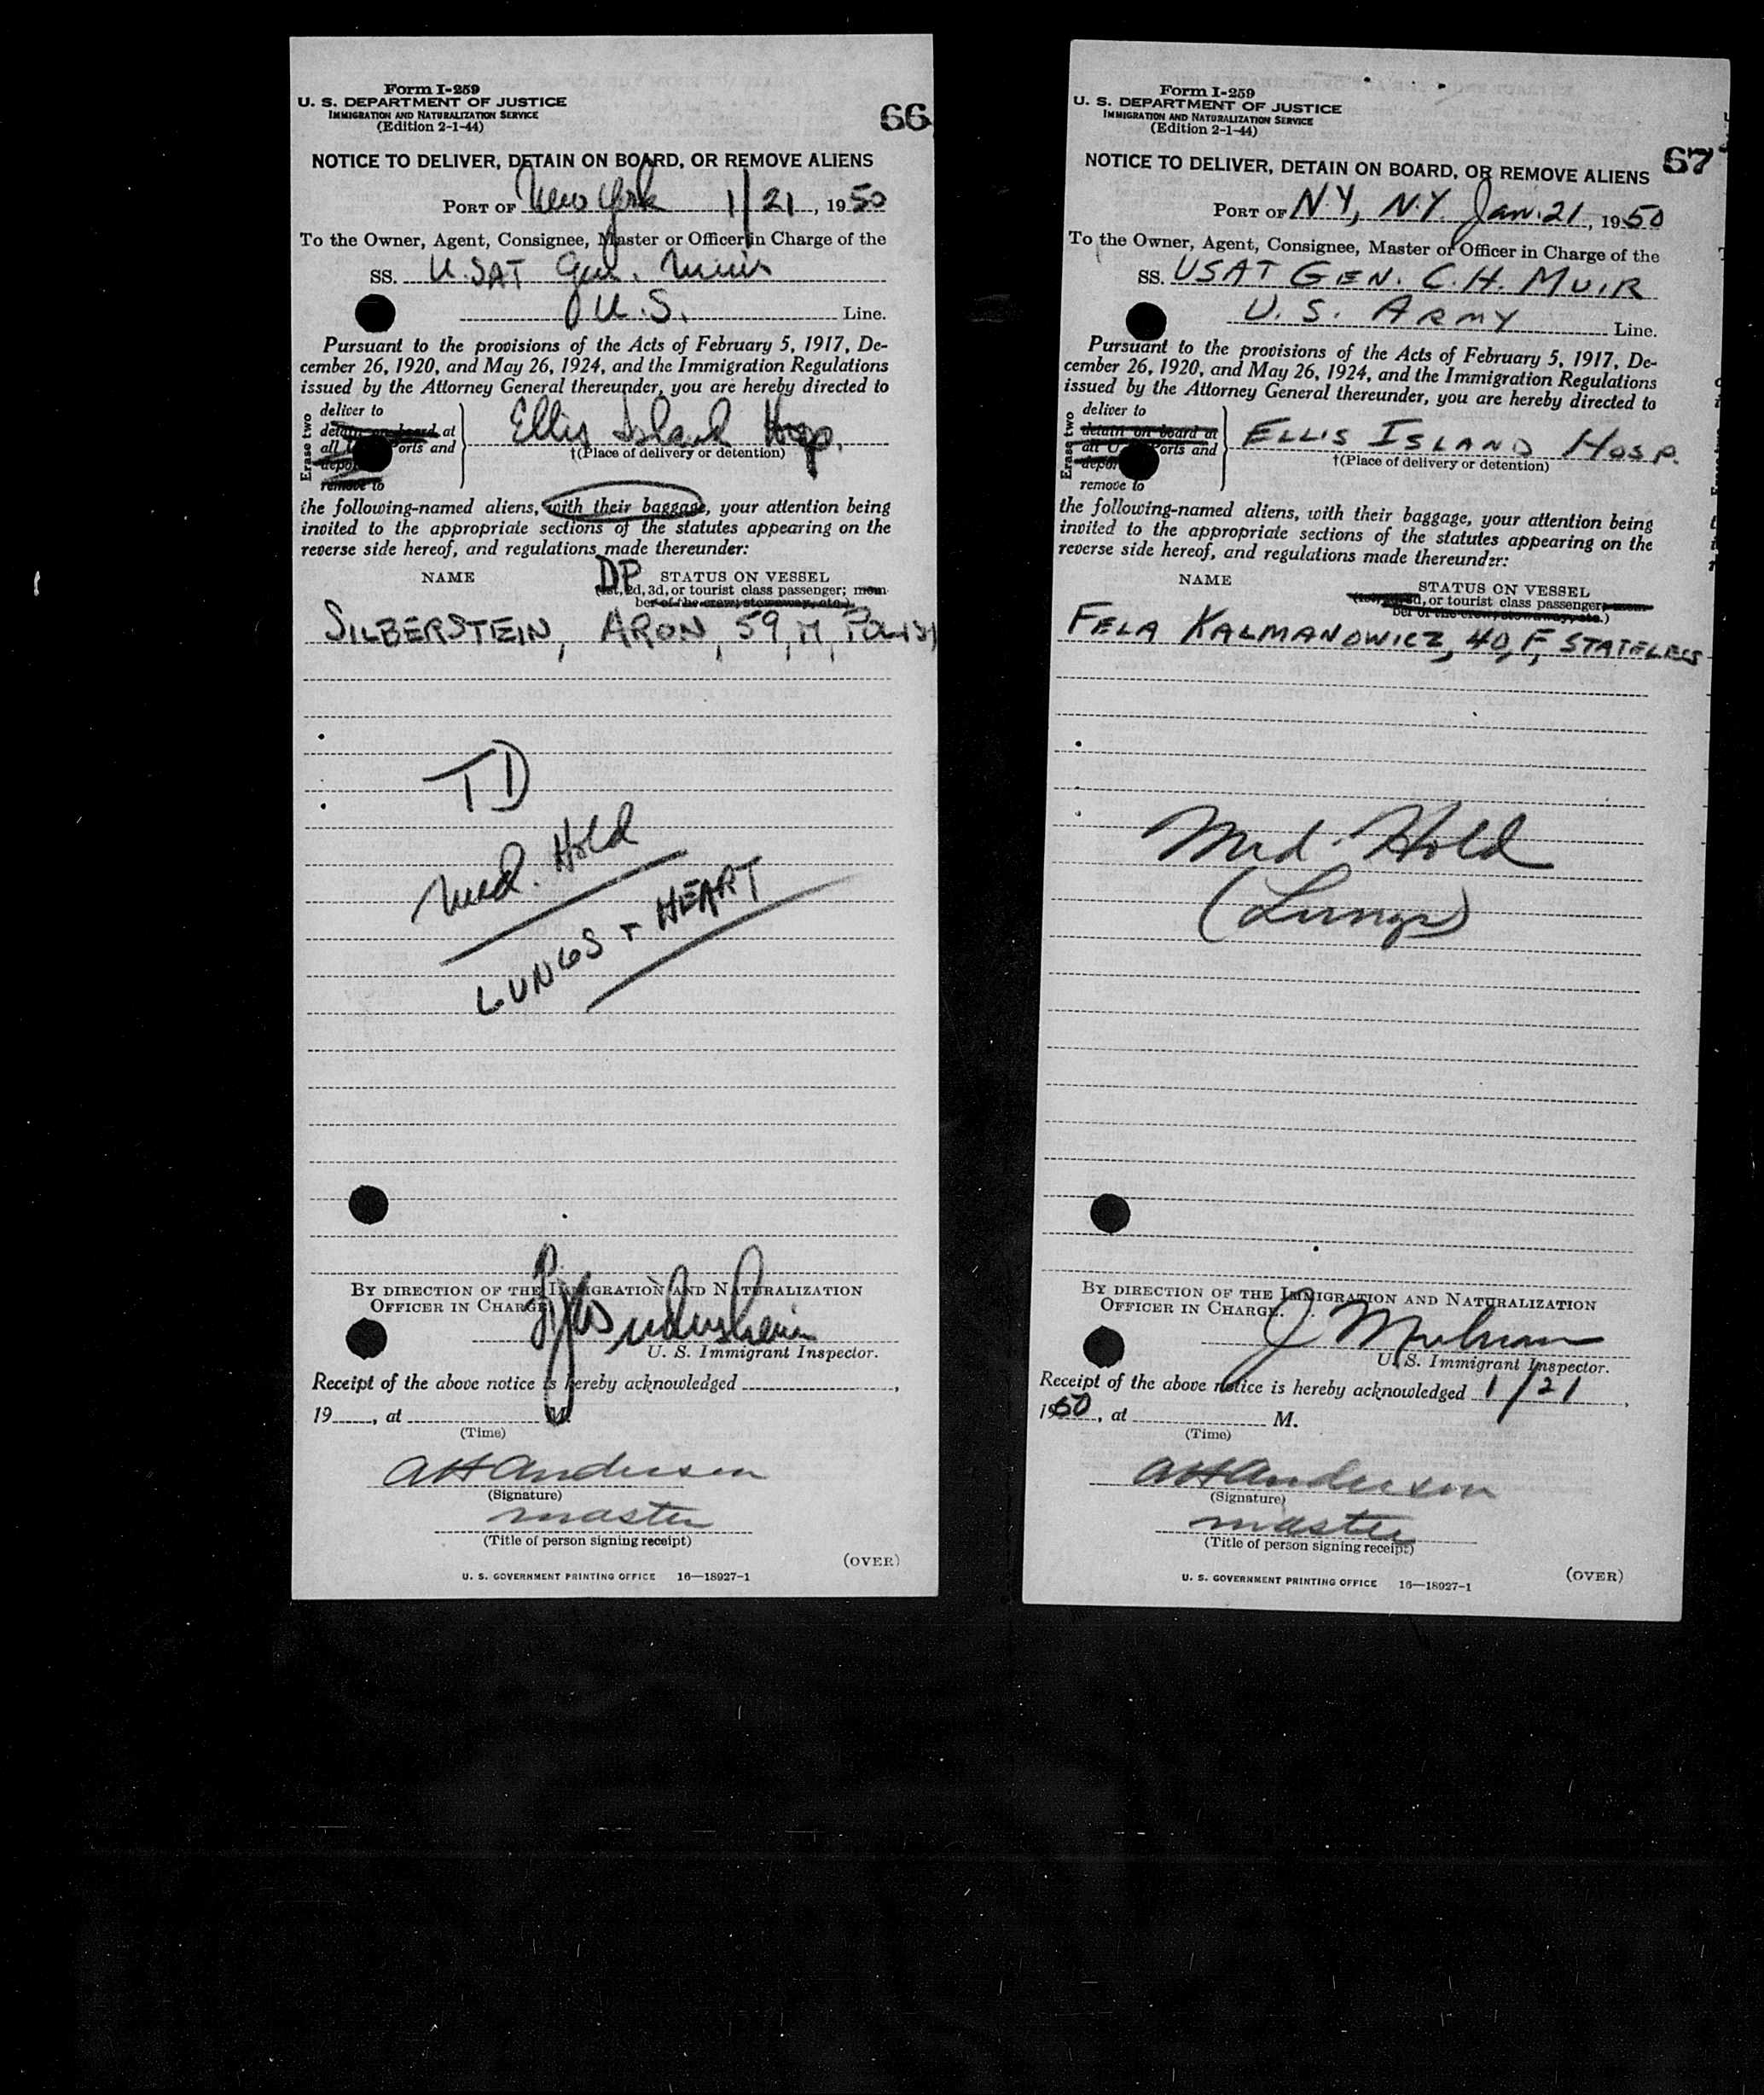 Form I-259
U. S. DEPARTMENT OF JUSTICE
IMMIGRATION AND NATURALIZATION SERVICE
(Edition 2-1-44)
66
NOTICE TO DELIVER, DETAIN ON BOARD, OR REMOVE ALIENS
PORT OF New York 1/21, 1950
To the Owner, Agent, Consignee, Master or Officer in Charge of the
SS. U.SAT Gen. Muir
U.S. Line.
Pursuant to the provisions of the Acts of February 5, 1917, De-
cember 26, 1920, and May 26, 1924, and the Immigration Regulations
issued by the Attorney General thereunder, you are hereby directed to
Erase two
deliver to
detain on board at
all orts and
depo
remove to
Ellis Island Hosp.
†(Place of delivery or detention)
the following-named aliens, with their baggage, your attention being
invited to the appropriate sections of the statutes appearing on the
reverse side hereof, and regulations made thereunder:
NAME DP STATUS ON VESSEL
(1st, 2d, 3d, or tourist class passenger; mem-
ber of the crew; stowaway, etc.)
SILBERSTEIN, ARON, 59, M, POLISH
TD
Med. Hold
LUNGS + HEART
BY DIRECTION OF THE IMMIGRATION AND NATURALIZATION
OFFICER IN CHARGE.
U. S. Immigrant Inspector.
Receipt of the above notice is hereby acknowledged
19 , at M.
(Time)
AH Anderson
(Signature)
master
(Title of person signing receipt)
(OVER)
U. S. GOVERNMENT PRINTING OFFICE 16—18927-1
Form I-259
U. S. DEPARTMENT OF JUSTICE
IMMIGRATION AND NATURALIZATION SERVICE
(Edition 2-1-44)
67
NOTICE TO DELIVER, DETAIN ON BOARD, OR REMOVE ALIENS
PORT OF NY, N.Y. Jan. 21, 1950
To the Owner, Agent, Consignee, Master or Officer in Charge of the
SS. USAT GEN. C.H. MUIR
U. S. ARMY Line.
Pursuant to the provisions of the Acts of February 5, 1917, De-
cember 26, 1920, and May 26, 1924, and the Immigration Regulations
issued by the Attorney General thereunder, you are hereby directed to
Erase two
deliver to
detain on board at
all U orts and
depor
remove to
ELLIS ISLAND HOSP.
†(Place of delivery or detention)
the following-named aliens, with their baggage, your attention being
invited to the appropriate sections of the statutes appearing on the
reverse side hereof, and regulations made thereunder:
NAME STATUS ON VESSEL
or tourist class passenger; mem-
ber of the crew; stowaway, etc.)
FELA KALMANOWICZ, 40, F, STATELESS
Med. Hold
(Lungs)
BY DIRECTION OF THE IMMIGRATION AND NATURALIZATION
OFFICER IN CHARGE.
U. S. Immigrant Inspector.
Receipt of the above notice is hereby acknowledged 1/21
1950, at M.
(Time)
AH Anderson
(Signature)
master
(Title of person signing receipt)
(OVER)
U. S. GOVERNMENT PRINTING OFFICE 16—18927-1